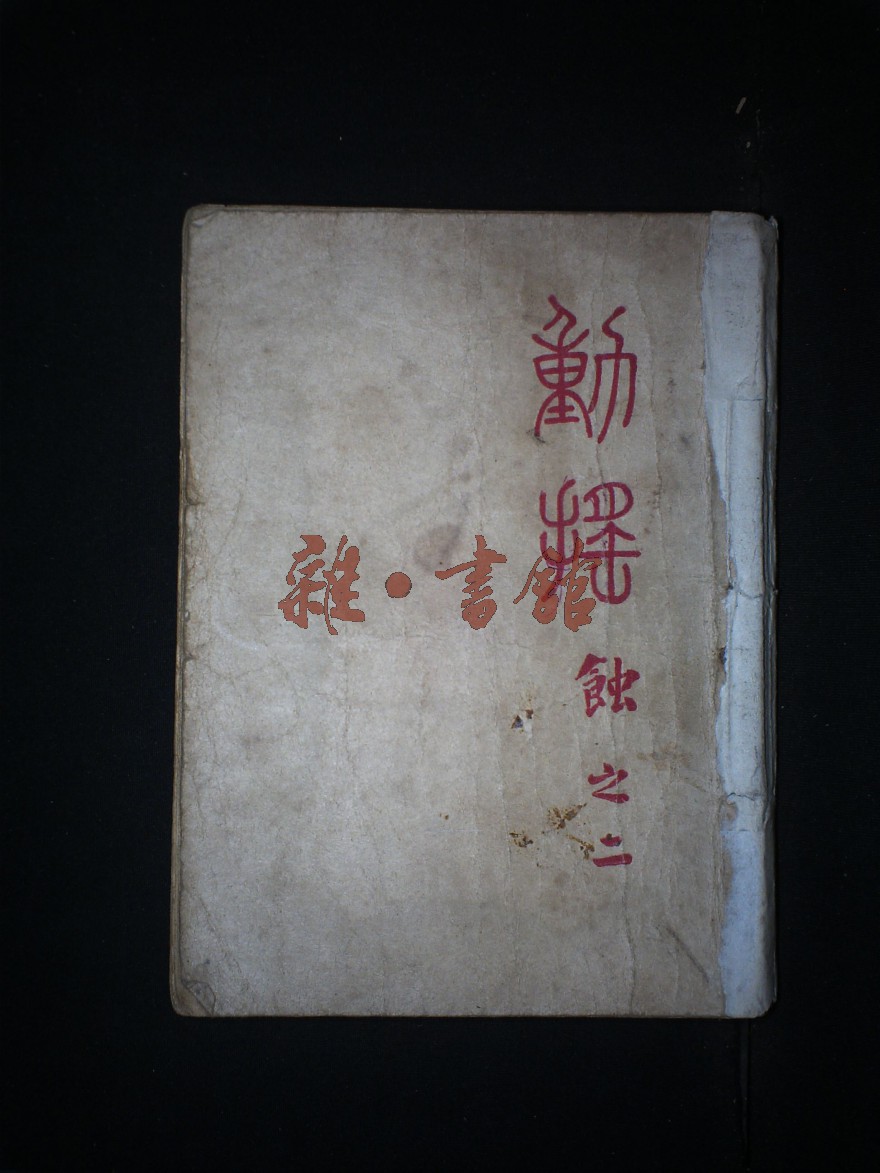 動搖
蝕之二
雜·書館